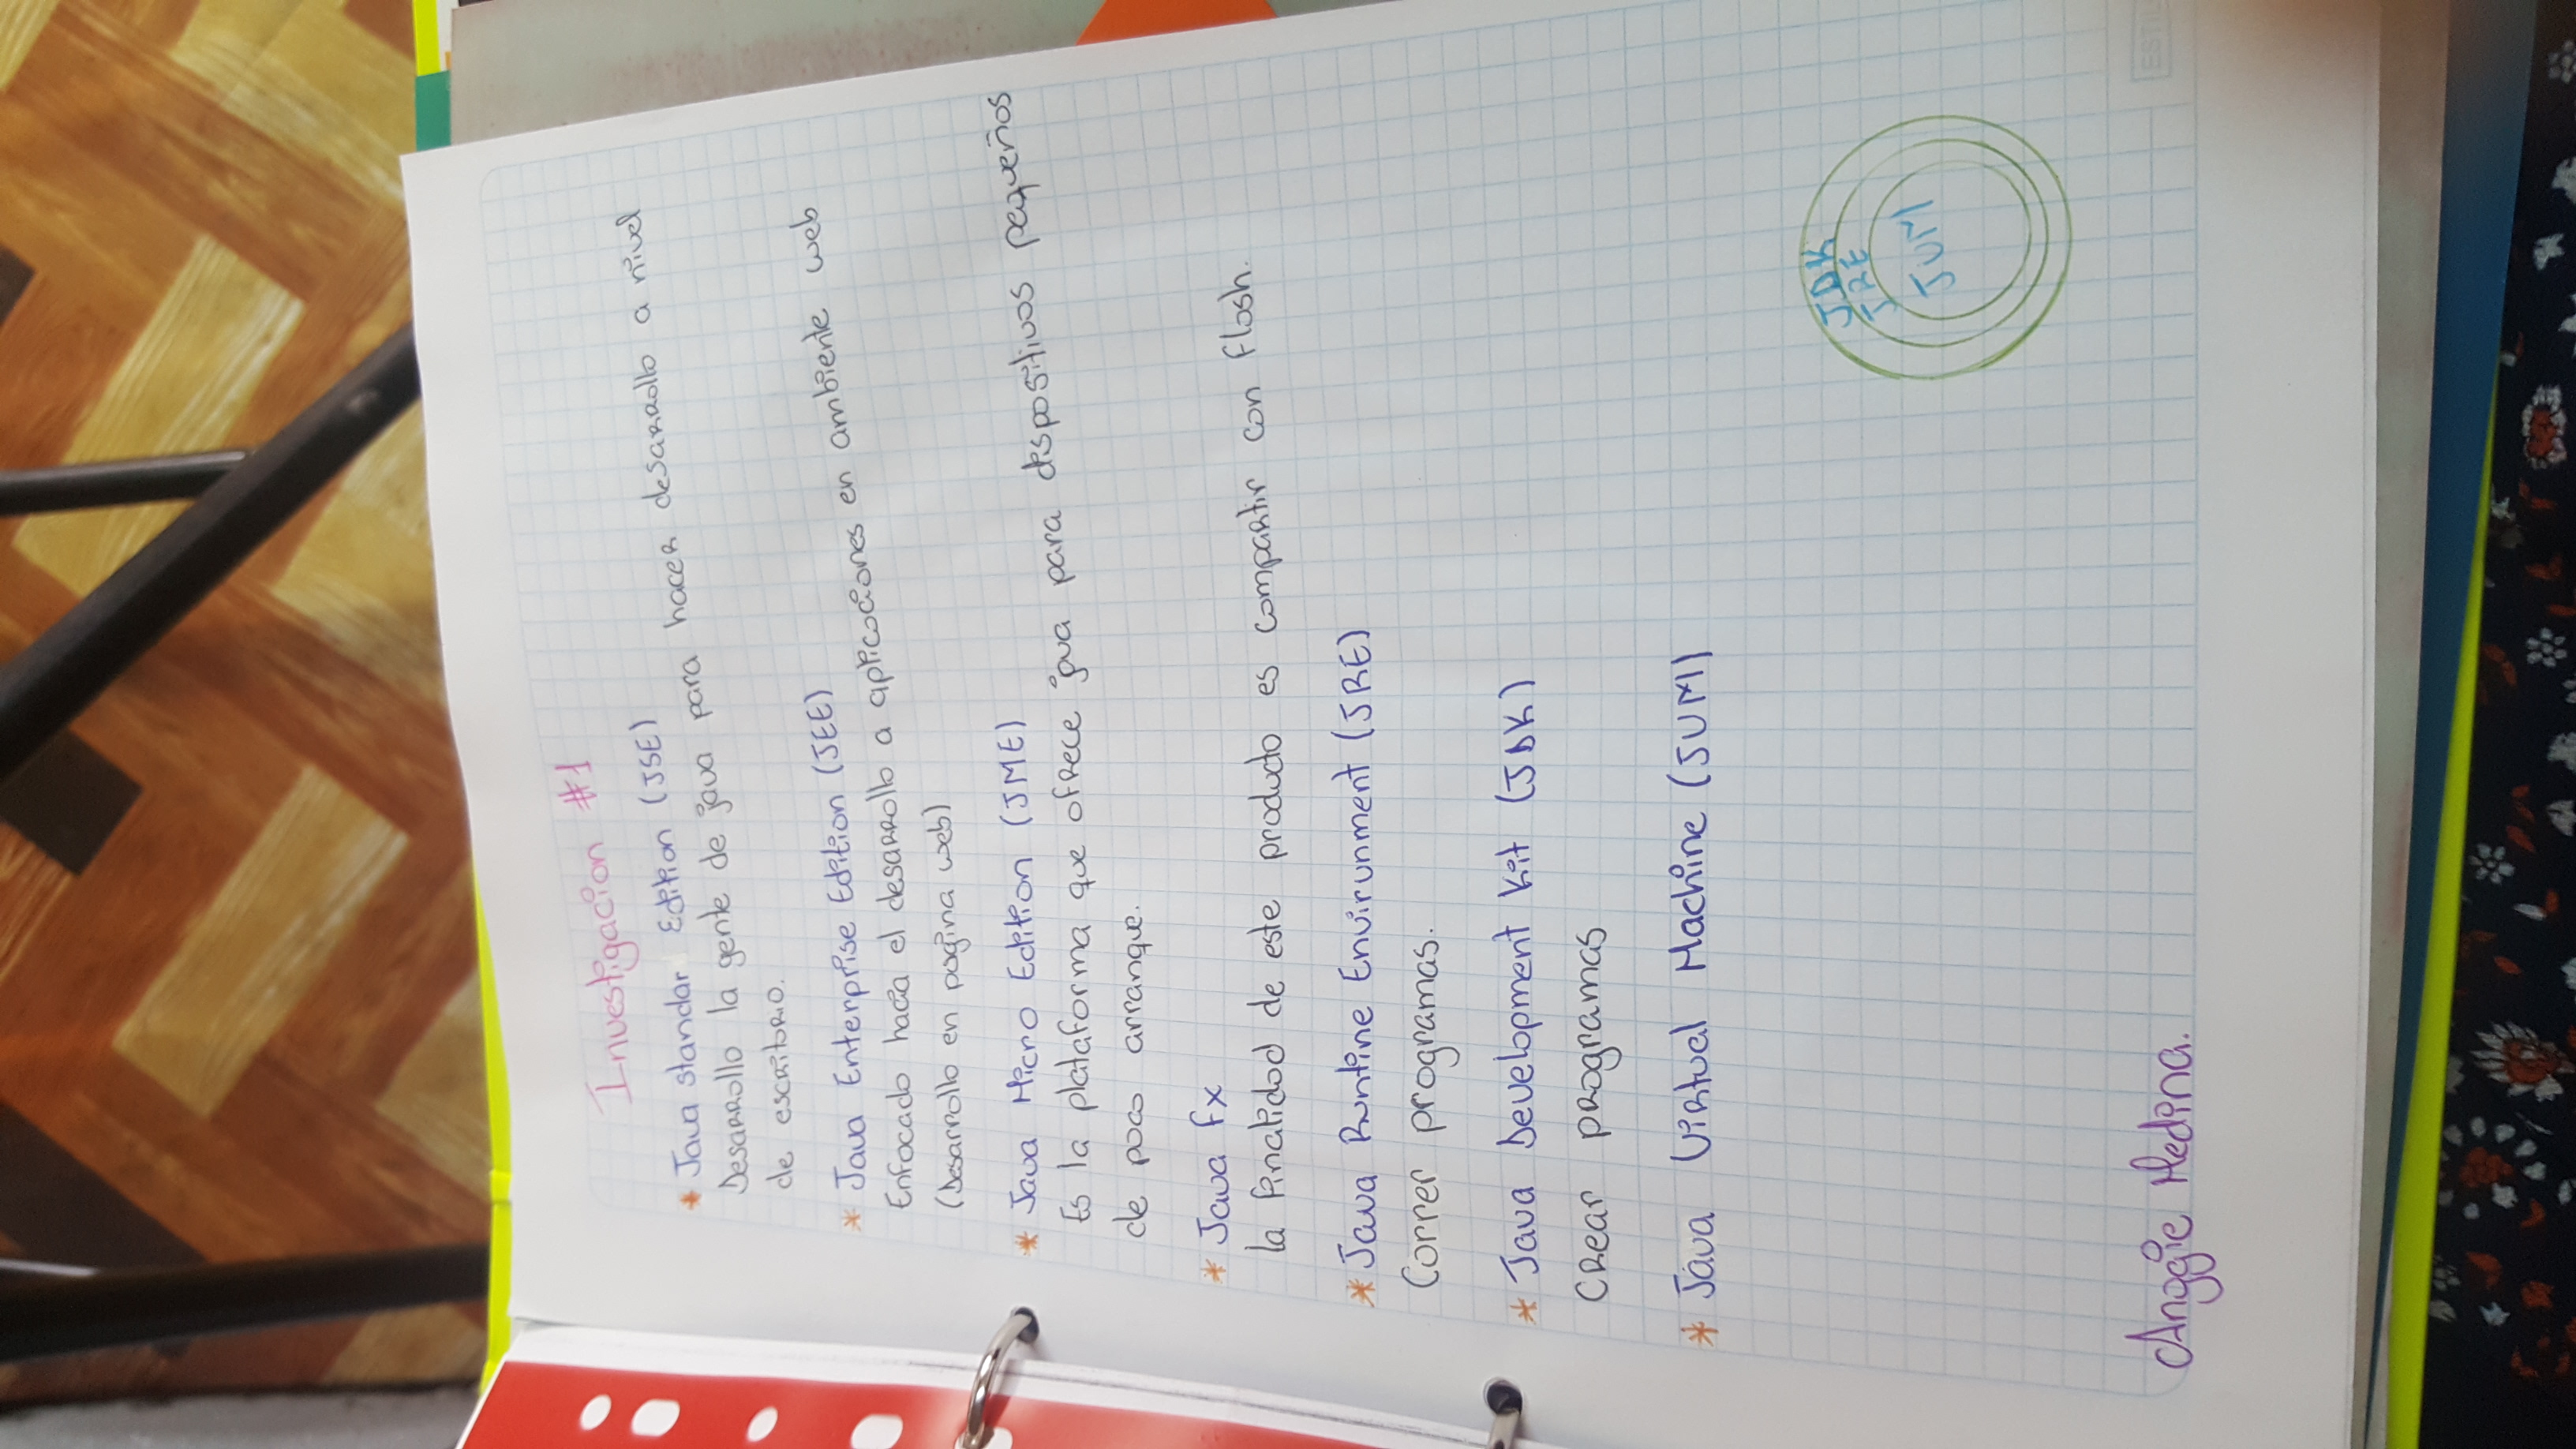 Investigacion #1
* Java standar Edition (JSE)
Desarrollo la gente de java para hacer desarrollo a nivel
de escritorio.
* Java Enterprise Edition (JEE)
Enfocado hacia el desarrollo a aplicaciones en ambiente web
(Desarrollo en pagina web)
* Java Micro Edition (JME)
Es la plataforma que ofrece java para dispositivos pequeños
de poco arranque.
* Java fx
la finalidad de este producto es compartir con flash.
* Java Runtine Envirunment (JRE)
Correr programas.
* Java Development Kit (JDK)
Crear programas
* Java Virtual Machine (JVM)
JDK
JRE
JVM
Anggie Medina.